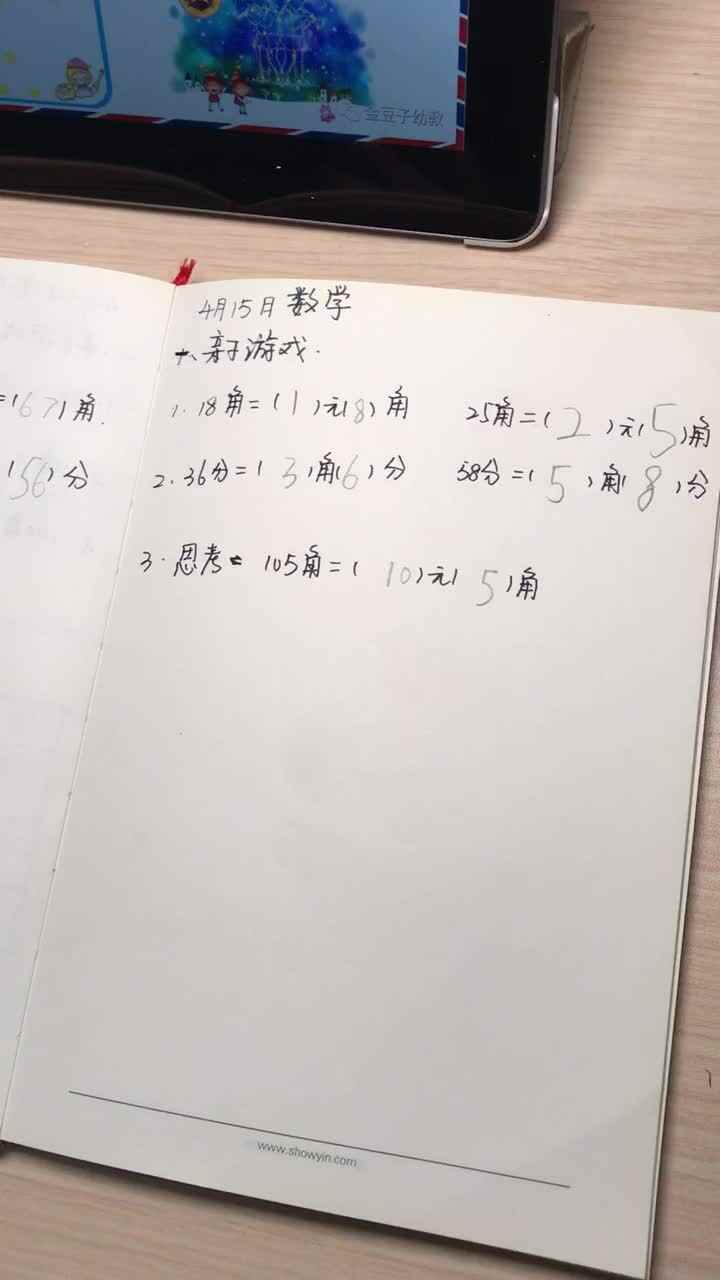 金豆子幼教
4月15日 数学
十、亲子游戏.
=(67)角.
1. 18角=(1)元(8)角 25角=(2)元(5)角
(56)分
2. 36分=(3)角(6)分 58分=(5)角(8)分
3. 思考= 105角=(10)元(5)角
www.showyin.com